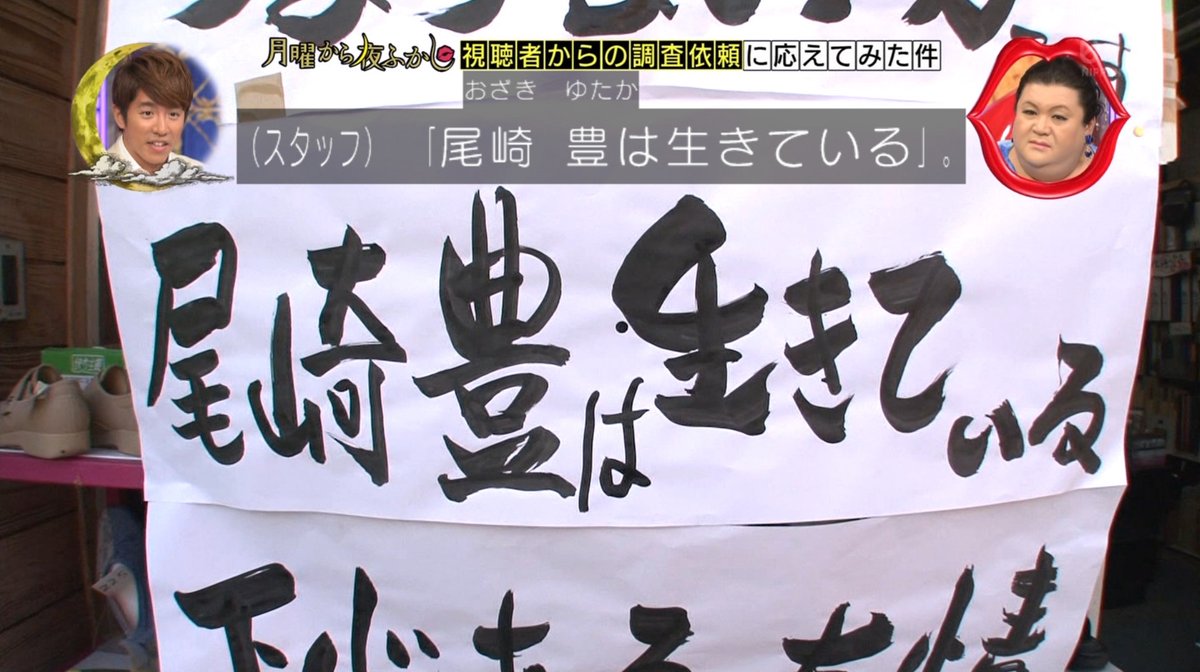 月曜から夜ふかし 視聴者からの調査依頼に応えてみた件
おざき ゆたか
(スタッフ) 「尾崎 豊は生きている」。
尾崎豊は生きている
下心ある友情